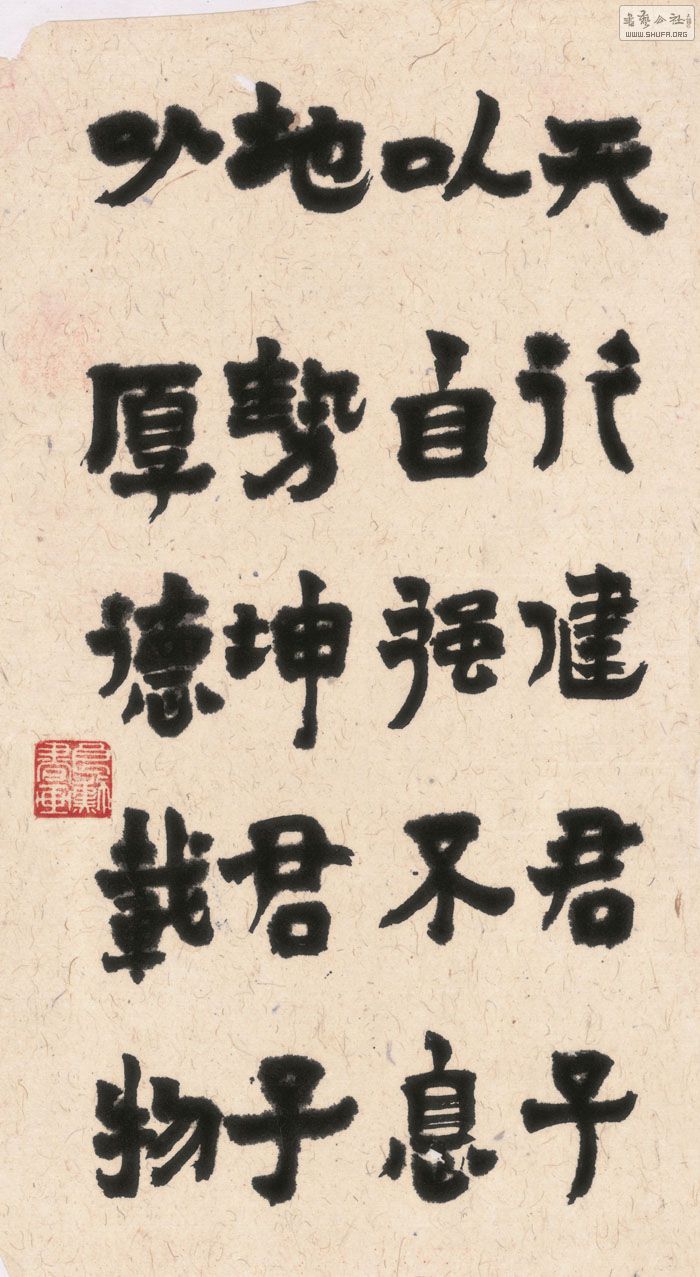 天行健君子
以自强不息
地势坤君子
以厚德载物
書藝公社
WWW.SHUFA.ORG